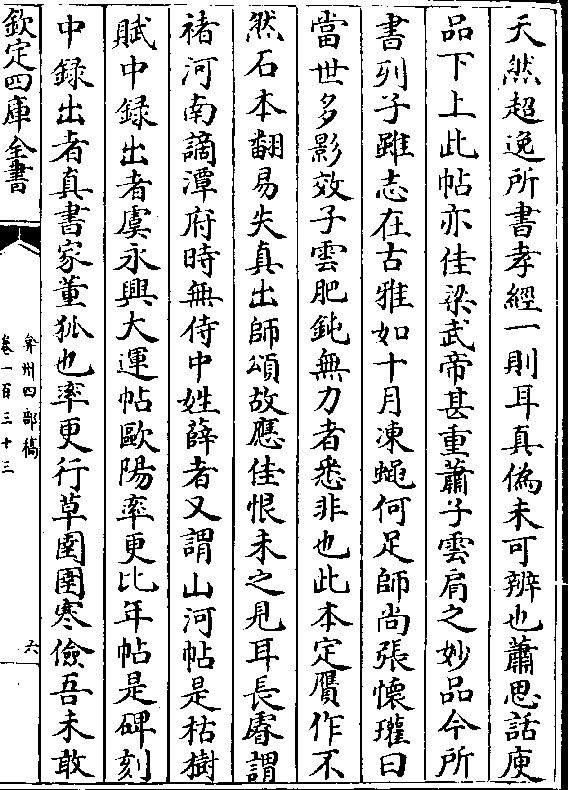 天然超逸所書孝經一則耳真偽未可辨也蕭思話庾
品下上此帖亦佳梁武帝甚重蕭子雲肩之妙品今所
書列子雖志在古雅如十月凍蠅何足師尚張懷瓘曰
當世多影效子雲肥鈍無力者悉非也此本定贋作不
然石本翻易失真出師頌故應佳恨未之見耳長睿謂
褚河南謫潭府時無侍中姓薛者又謂山河帖是枯樹
賦中録出者虞永興大運帖歐陽率更比年帖是碑刻
中録出者真書家董狐也率更行草圉圉寒儉吾未敢
欽定四庫全書
弇州四部稿
卷一百三十三
六